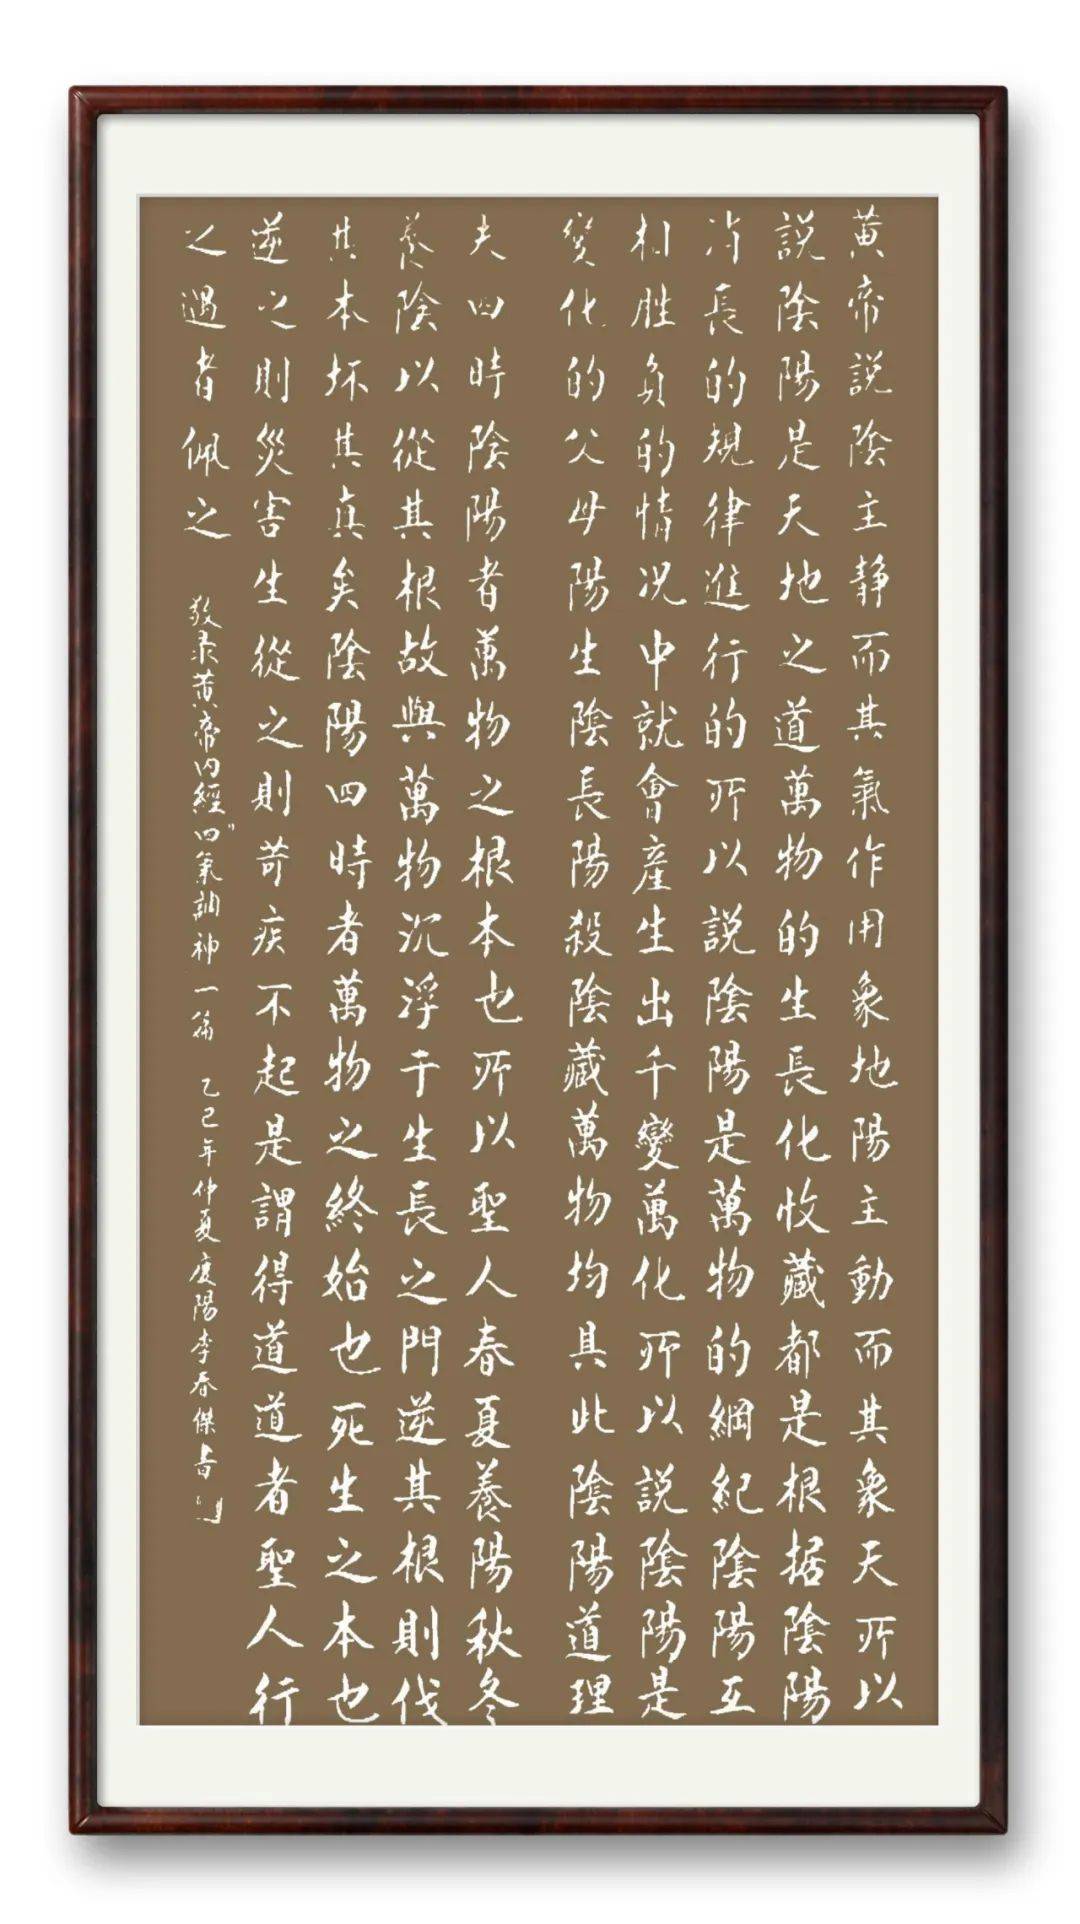 黄帝説陰主静而其氣作用象地陽主動而其象天所以
説陰陽是天地之道萬物的生長化收藏都是根据陰陽
消長的規律進行的所以説陰陽是萬物的綱紀陰陽互
相胜負的情况中就會產生出千變萬化所以説陰陽是
變化的父母陽生陰長陽殺陰藏萬物均具此陰陽道理
夫四時陰陽者萬物之根本也所以聖人春夏養陽秋冬
養陰以從其根故與萬物沉浮于生長之門逆其根則伐
其本坏其真矣陰陽四時者萬物之終始也死生之本也
逆之則災害生從之則苛疾不起是謂得道道者聖人行
之遇者佩之
敬录黄帝内經"四氣調神一篇 乙巳年仲夏慶陽李春傑書